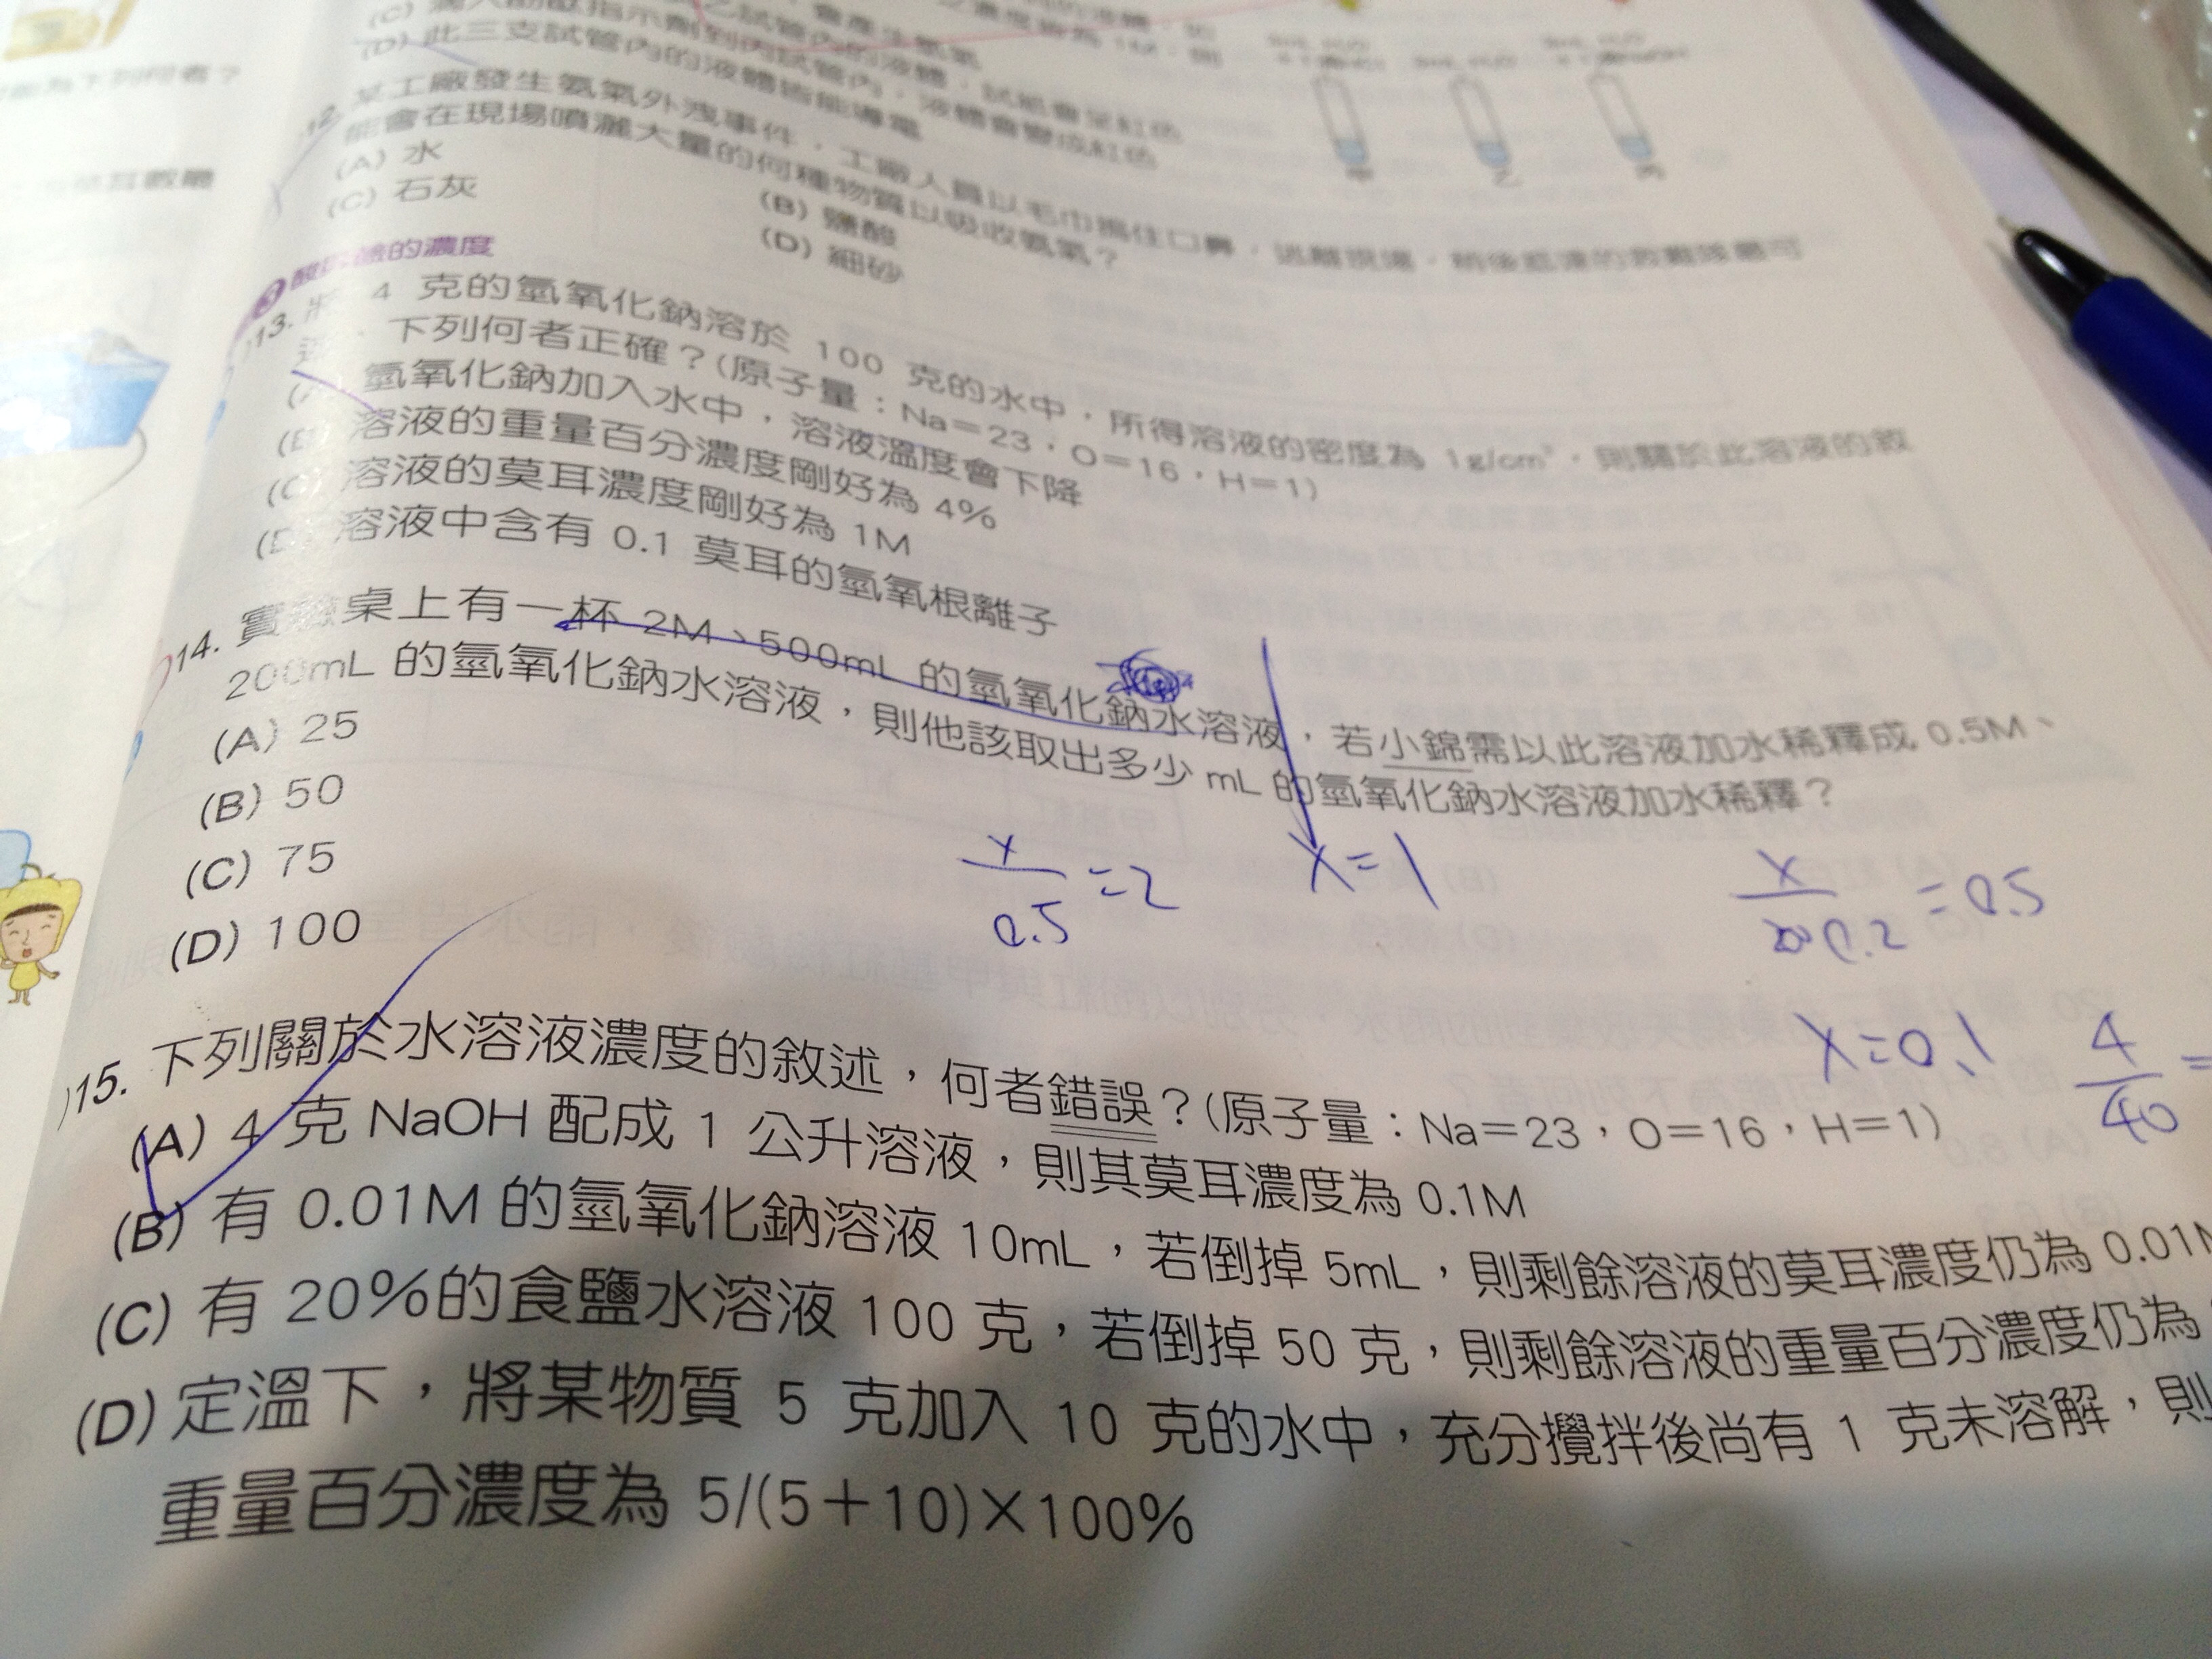 (D) 此三支試管內的液體皆能導電
12. 某工廠發生氨氣外洩事件，工廠人員以毛巾摀住口鼻，逃離現場，稍後趕達的救難隊最可
能會在現場噴灑大量的何種物質以吸收氨氣？
(A) 水
(B) 鹽酸
(C) 石灰
(D) 細砂
3 的濃度
13. 將 4 克的氫氧化鈉溶於 100 克的水中，所得溶液的密度為 1g/cm³，則關於此溶液的敘
述，下列何者正確？(原子量：Na＝23，O＝16，H＝1)
(A) 氫氧化鈉加入水中，溶液溫度會下降
(B) 溶液的重量百分濃度剛好為 4%
(C) 溶液的莫耳濃度剛好為 1M
(D) 溶液中含有 0.1 莫耳的氫氧根離子
14. 實驗桌上有一杯 2M、500mL 的氫氧化鈉水溶液，若小錦需以此溶液加水稀釋成 0.5M、
200mL 的氫氧化鈉水溶液，則他該取出多少 mL 的氫氧化鈉水溶液加水稀釋？
(A) 25
(B) 50
(C) 75
(D) 100
x/0.5 = 2
x = 1
x/0.2 = 0.5
x = 0.1
4/40 =
15. 下列關於水溶液濃度的敘述，何者錯誤？(原子量：Na＝23，O＝16，H＝1)
(A) 4 克 NaOH 配成 1 公升溶液，則其莫耳濃度為 0.1M
(B) 有 0.01M 的氫氧化鈉溶液 10mL，若倒掉 5mL，則剩餘溶液的莫耳濃度仍為 0.01M
(C) 有 20%的食鹽水溶液 100 克，若倒掉 50 克，則剩餘溶液的重量百分濃度仍為
(D) 定溫下，將某物質 5 克加入 10 克的水中，充分攪拌後尚有 1 克未溶解，則
重量百分濃度為 5/(5＋10)×100%